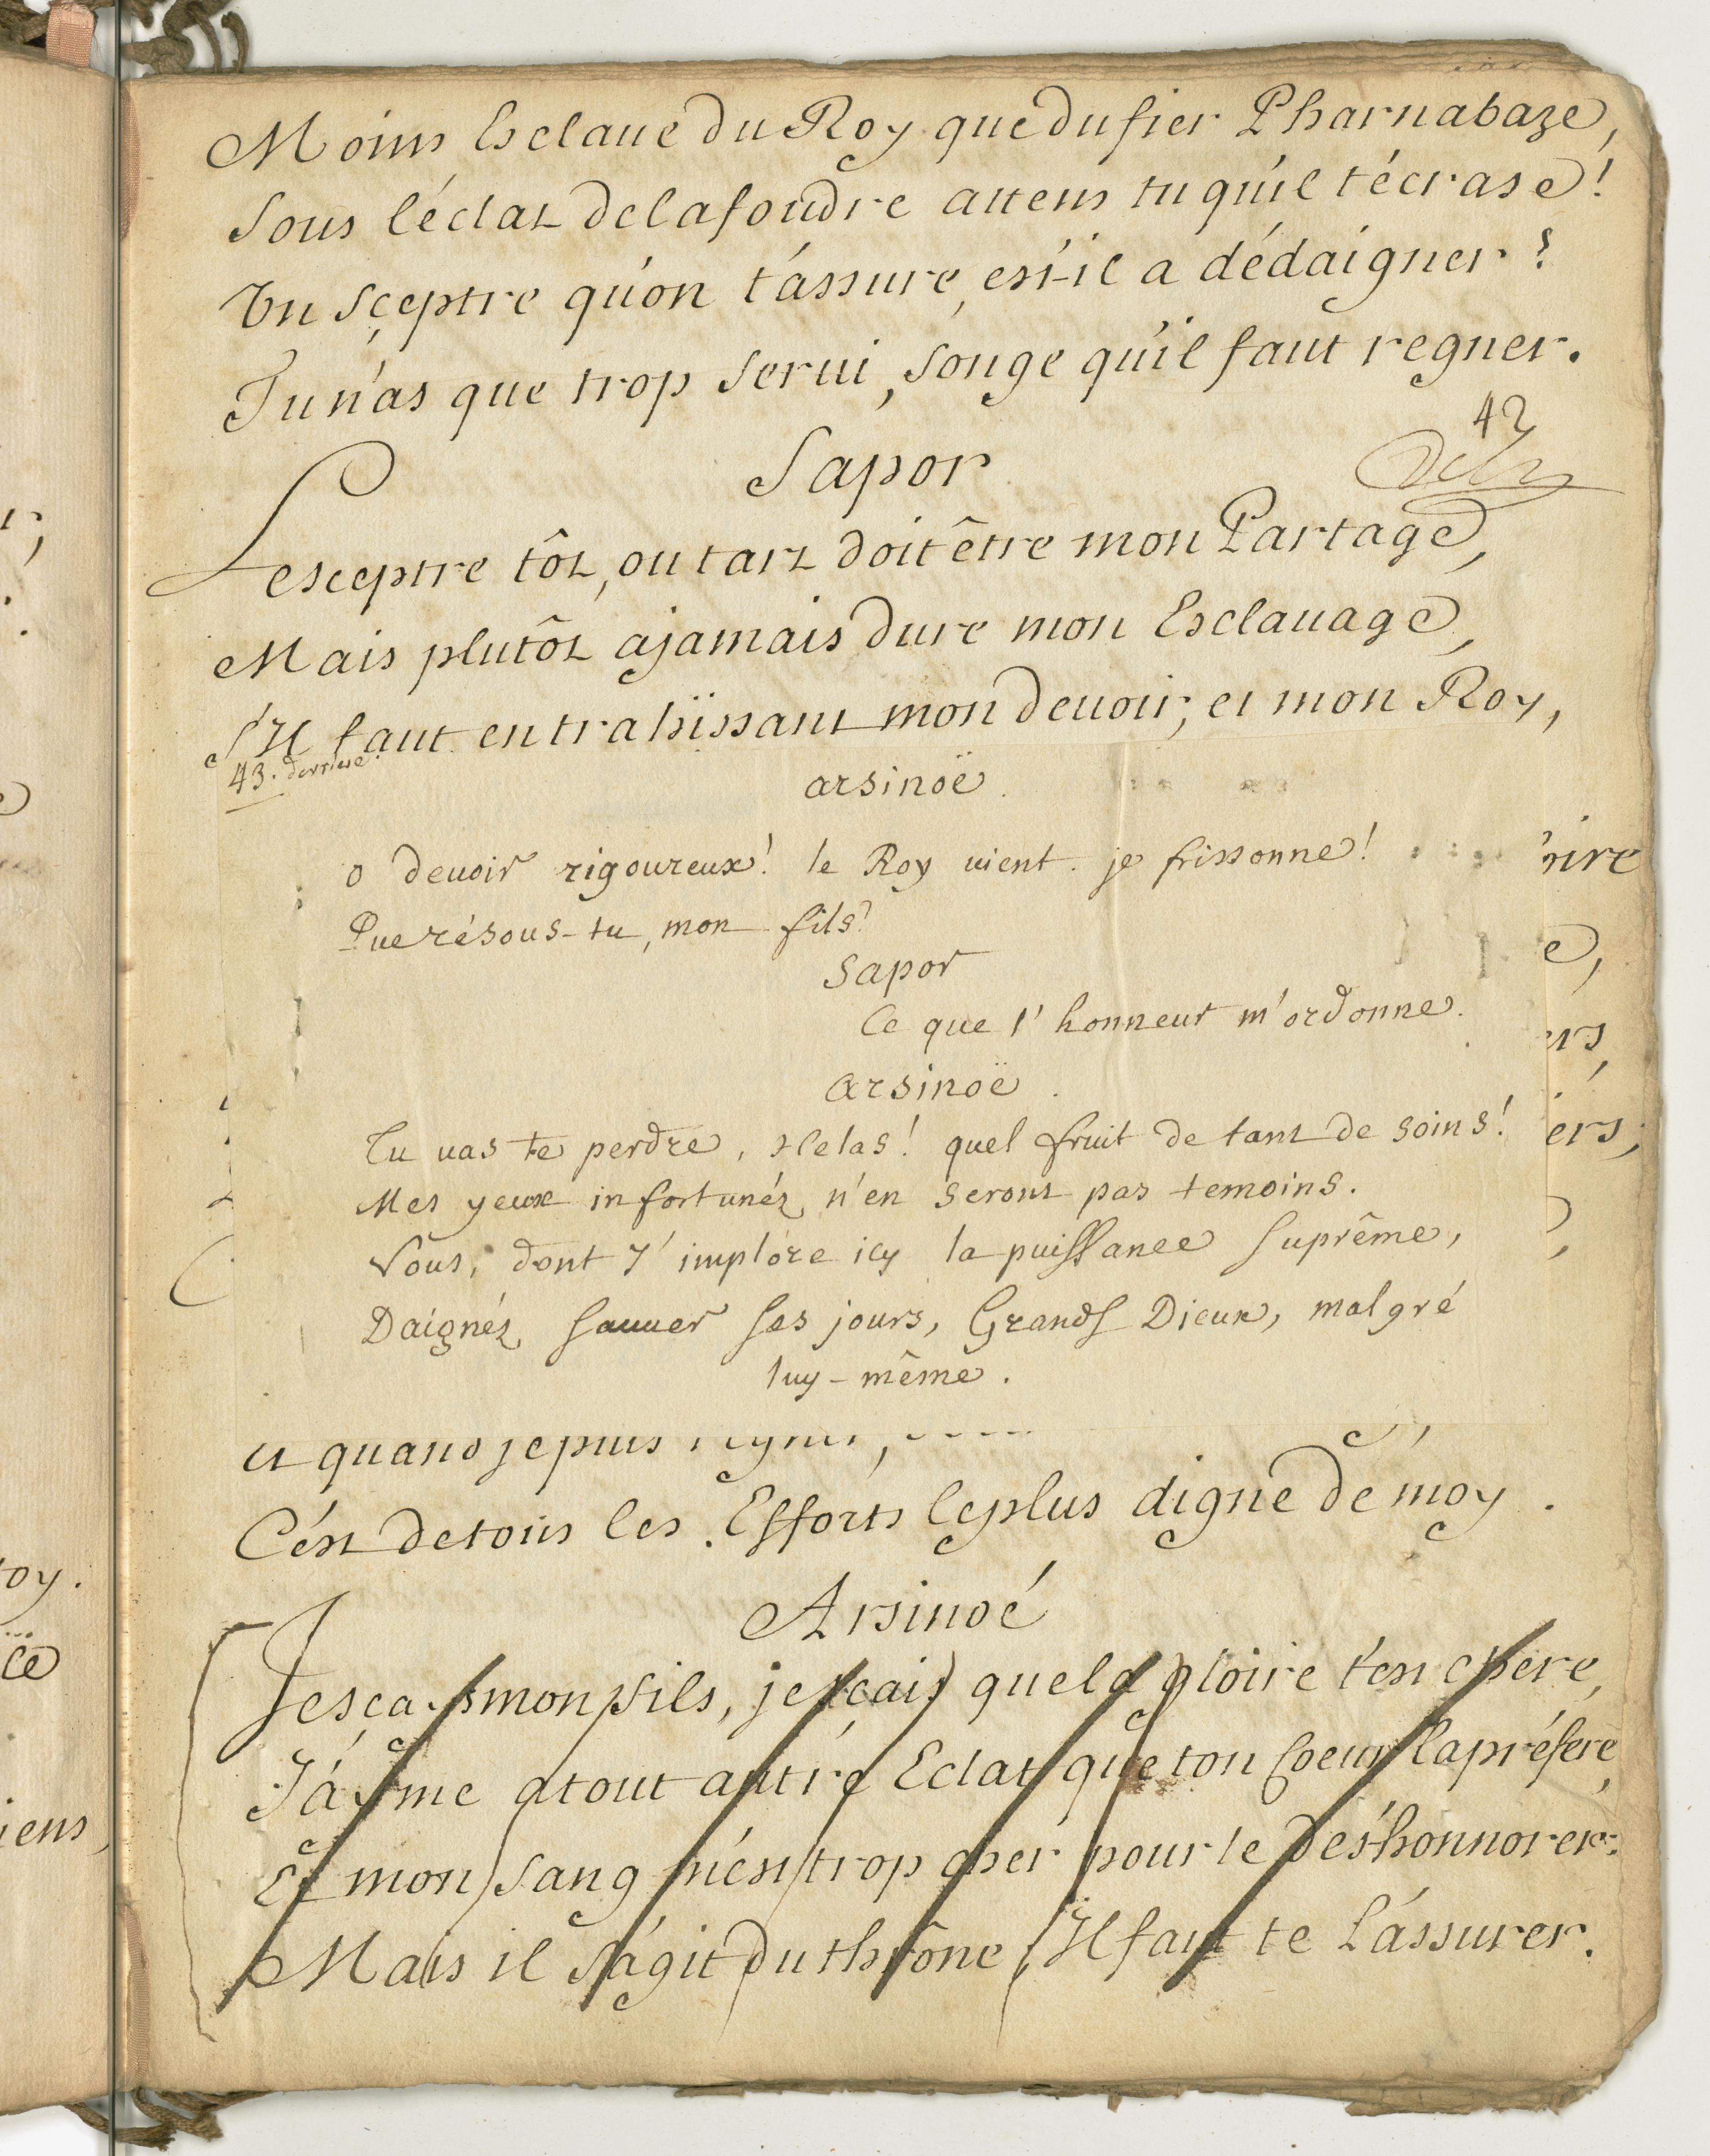 Moins Esclaue du Roy que du fier Pharnabaze,
Sous l'éclat de la foudre attens tu qu'il t'écrase!
Un sçeptre qu'on t'assure, est-il a dédaigner?
Tu n'as que trop serui, songe qu'il faut regner.
42
Sapor
Le sceptre tôt, ou tart doit être mon Partage,
Mais plutôt a jamais dure mon Esclauage,
S'Il faut en trahïssant mon deuoir, et mon Roy,
43. derriere
arsinoë.
o deuoir rigoureux! le Roy uient. je frissonne!
Que résous-tu, mon fils?
Sapor
Ce que l'honneur m'ordonne.
arsinoë.
Tu uas te perdre, Helas! quel fruit de tant de soins!
Mes yeux infortunéz n'en seront pas temoins.
Vous, dont j'implore icy la puissance suprême,
Daignéz sauuer ses jours, Grands Dieux, malgré
luy-même.
et quand je puis regner,
C'est de tous les Efforts le plus digne de moy.
Arsinoé
Je sçais mon fils, je sçais quel a gloire t'est chere,
J'aÿme a tout autre Eclat que ton Coeur la préfere,
Et mon sang m'est trop cher pour le des'honnorer.
Mais il s'agit du thrône, Il faut te l'assurer.